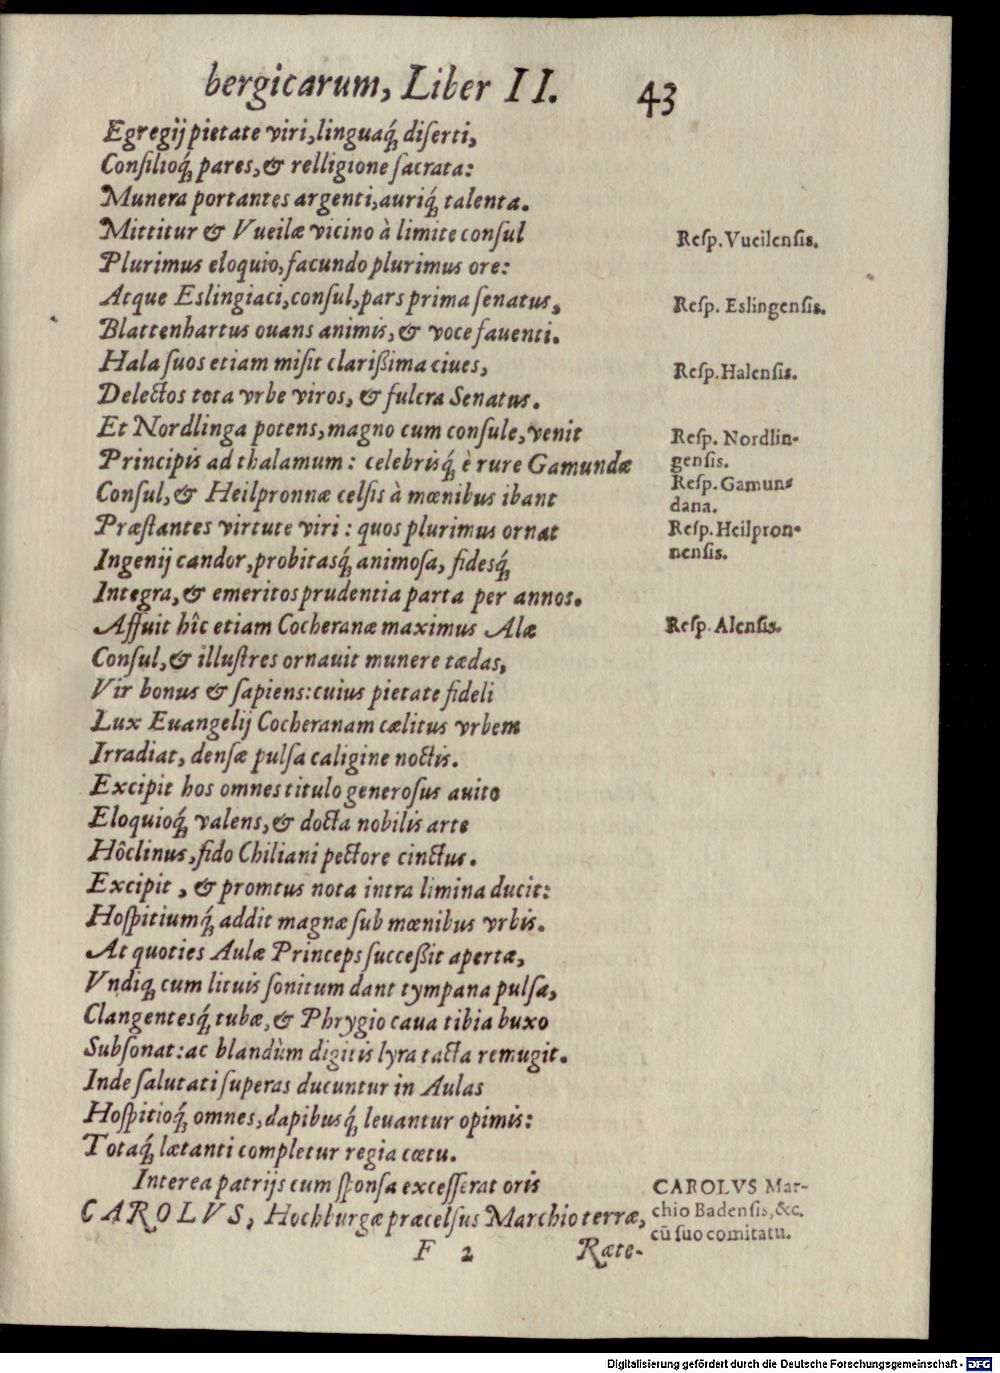 bergicarum, Liber II. 43
Egregij pietate viri, linguaq́; diserti,
Consilioq́; pares, & relligione sacrata:
Munera portantes argenti, auriq́; talenta.
Mittitur & Vueilæ vicino à limite consul
Resp. Vueilensis.
Plurimus eloquio, facundo plurimus ore:
Atque Eslingiaci, consul, pars prima senatus,
Resp. Eslingensis.
Blattenhartus ouans animis, & voce fauenti.
Hala suos etiam misit clarißima ciues,
Resp. Halensis.
Delectos tota vrbe viros, & fulcra Senatus.
Et Nordlinga potens, magno cum consule, venit
Resp. Nordlin-
gensis.
Principis ad thalamum: celebrisq́; è rure Gamundæ
Resp. Gamun-
dana.
Consul, & Heilpronnæ celsis à mœnibus ibant
Præstantes virtute viri: quos plurimus ornat
Resp. Heilpron-
nensis.
Ingenij candor, probitasq́; animosa, fidesq́;
Integra, & emeritos prudentia parta per annos.
Affuit hîc etiam Cocheranæ maximus Alæ
Resp. Alensis.
Consul, & illustres ornauit munere tædas,
Vir bonus & sapiens: cuius pietate fideli
Lux Euangelij Cocheranam cælitus vrbem
Irradiat, densæ pulsa caligine noctis.
Excipit hos omnes titulo generosus auito
Eloquioq́; valens, & docta nobilis arte
Hôclinus, fido Chiliani pectore cinctus.
Excipit, & promtus nota intra limina ducit:
Hospitiumq́; addit magnæ sub mœnibus vrbis.
At quoties Aulæ Princeps successit apertæ,
Vndiq; cum lituis sonitum dant tympana pulsa,
Clangentesq́; tubæ, & Phrygio caua tibia buxo
Subsonat: ac blandùm digitis lyra tacta remugit.
Inde salutati superas ducuntur in Aulas
Hospitioq́; omnes, dapibusq́; leuantur opimis:
Totaq́; lætanti completur regia cœtu.
Interea patrijs cum sponsa excesserat oris
CAROLVS, Hochburgæ præcelsus Marchio terræ,
CAROLVS Mar-
chio Badensis, &c.
cū suo comitatu.
F 2 Ræte-
Digitalisierung gefördert durch die Deutsche Forschungsgemeinschaft - DFG